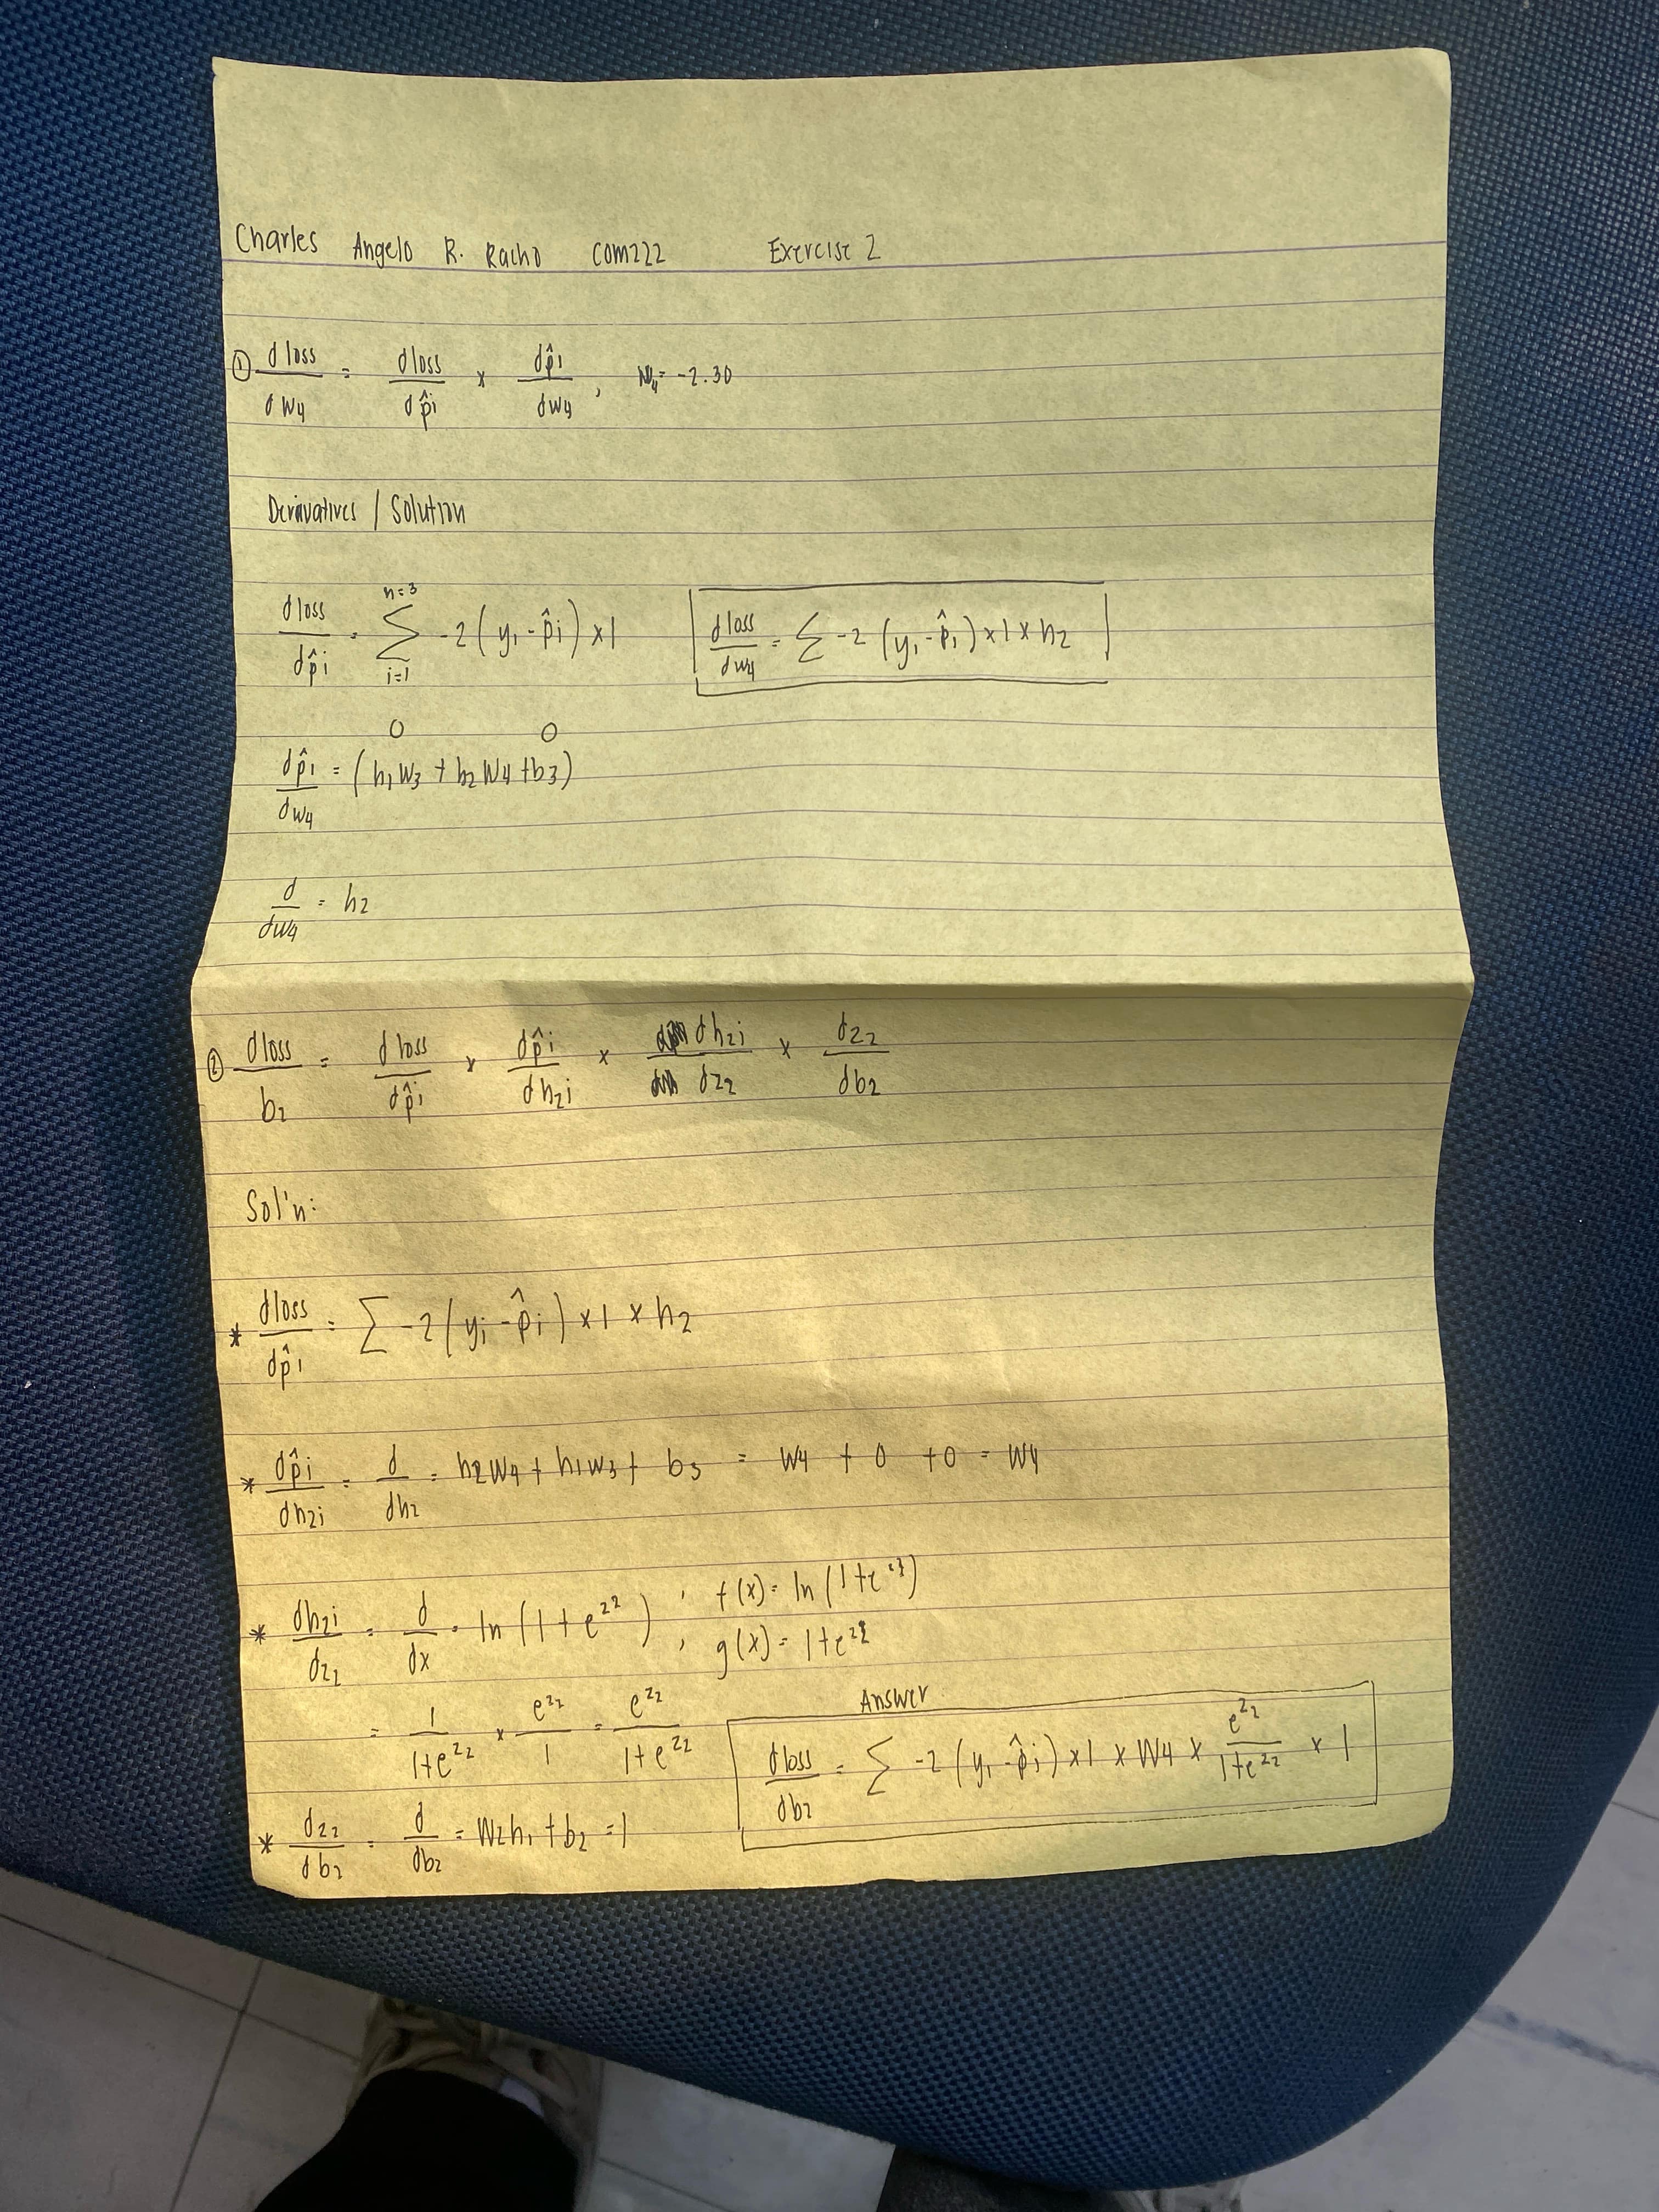 Charles Angelo R. Racho COM222 Exercise 2
① d loss / d w4 = d loss / d p̂i × d p̂i / d w4 , W4 = -2.30
Derivatives / Solution
d loss / d p̂i = Σ n=3 i=1 -2 (yi - p̂i) × 1
d loss / d w4 = Σ -2 (yi - p̂i) × 1 × h2
0 0
d p̂i / d w4 = (h1 W3 + h2 W4 + b3)
d / d w4 = h2
② d loss / b2 = d loss / d p̂i × d p̂i / d h2i × d h2i / d z2 × d z2 / d b2
Sol'n:
* d loss / d p̂i = Σ -2 (yi - p̂i) × 1 × h2
* d p̂i / d h2i = d / d h2 = h2 W4 + h1 W3 + b3 = W4 + 0 + 0 = W4
* d h2i / d z2 = d / dx = ln (1 + e^z2) , f(x) = ln (1 + e^z2)
, g(x) = 1 + e^z2
= 1 / 1 + e^z2 × e^z2 / 1 = e^z2 / 1 + e^z2
Answer
d loss / d b2 = Σ -2 (yi - p̂i) × 1 × W4 × e^z2 / 1 + e^z2 × 1
* d z2 / d b2 = d / d b2 = W2 h1 + b2 = 1